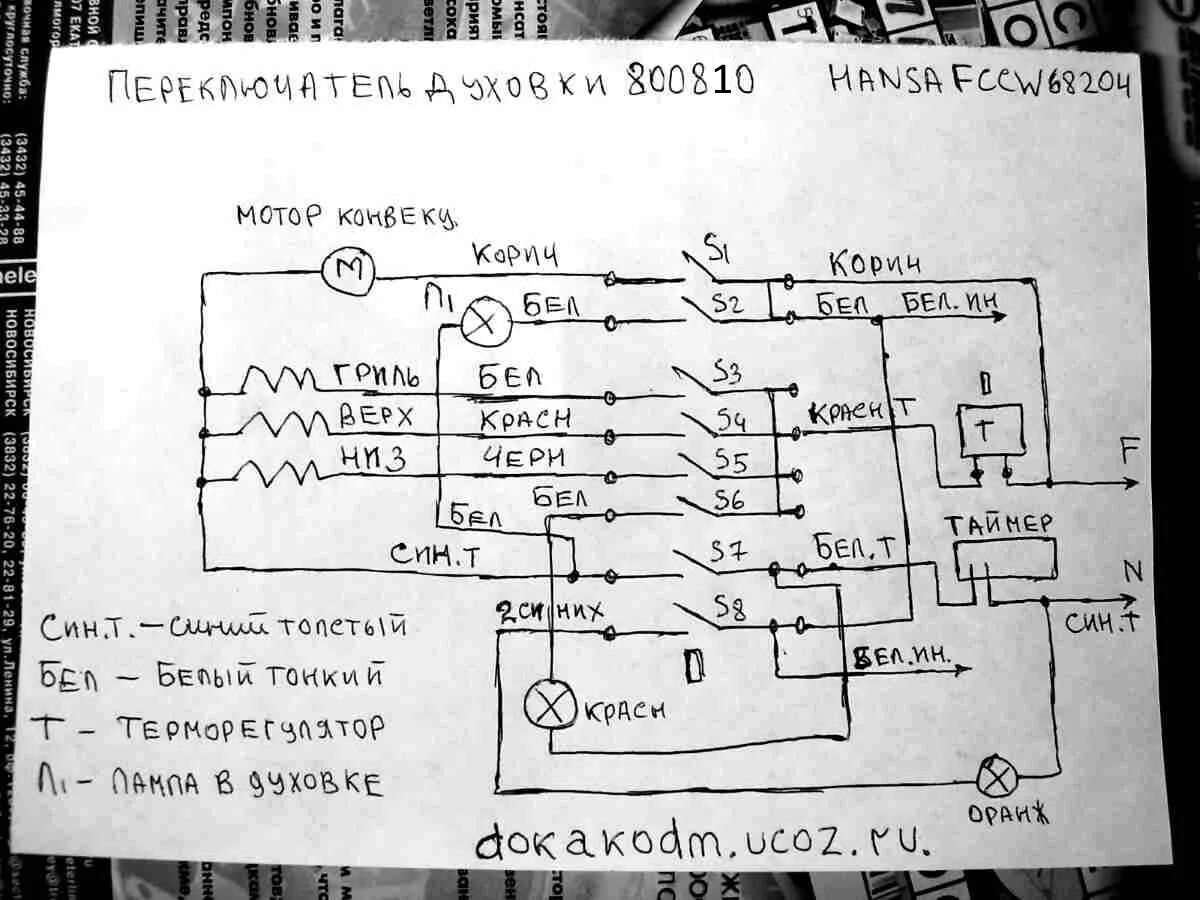 ПЕРЕКЛЮЧАТЕЛЬ ДУХОВКИ 800810 HANSA FCCW68204
МОТОР КОНВЕКЦ.
М
КОРИЧ
S1
КОРИЧ
Л1
БЕЛ
S2
БЕЛ
БЕЛ.ИН
ГРИЛЬ
БЕЛ
S3
ВЕРХ
КРАСН
S4
КРАСН Т
Т
НИЗ
ЧЕРН
S5
F
БЕЛ
S6
БЕЛ
ТАЙМЕР
СИН.Т
S7
БЕЛ.Т
N
2СИНИХ
S8
СИН.Т
БЕЛ.ИН.
КРАСН
ОРАНЖ
СИН.Т.-СИНИЙ ТОЛСТЫЙ
БЕЛ - БЕЛЫЙ ТОНКИЙ
Т - ТЕРМОРЕГУЛЯТОР
Л1 - ЛАМПА В ДУХОВКЕ
dokakodm.ucoz.ru.
НОВОСИБИРСК (3832) 22-76-20, 22-81-29, ул.Ленина, 12,
(3432) 45-44-88
(3432) 45-33-28